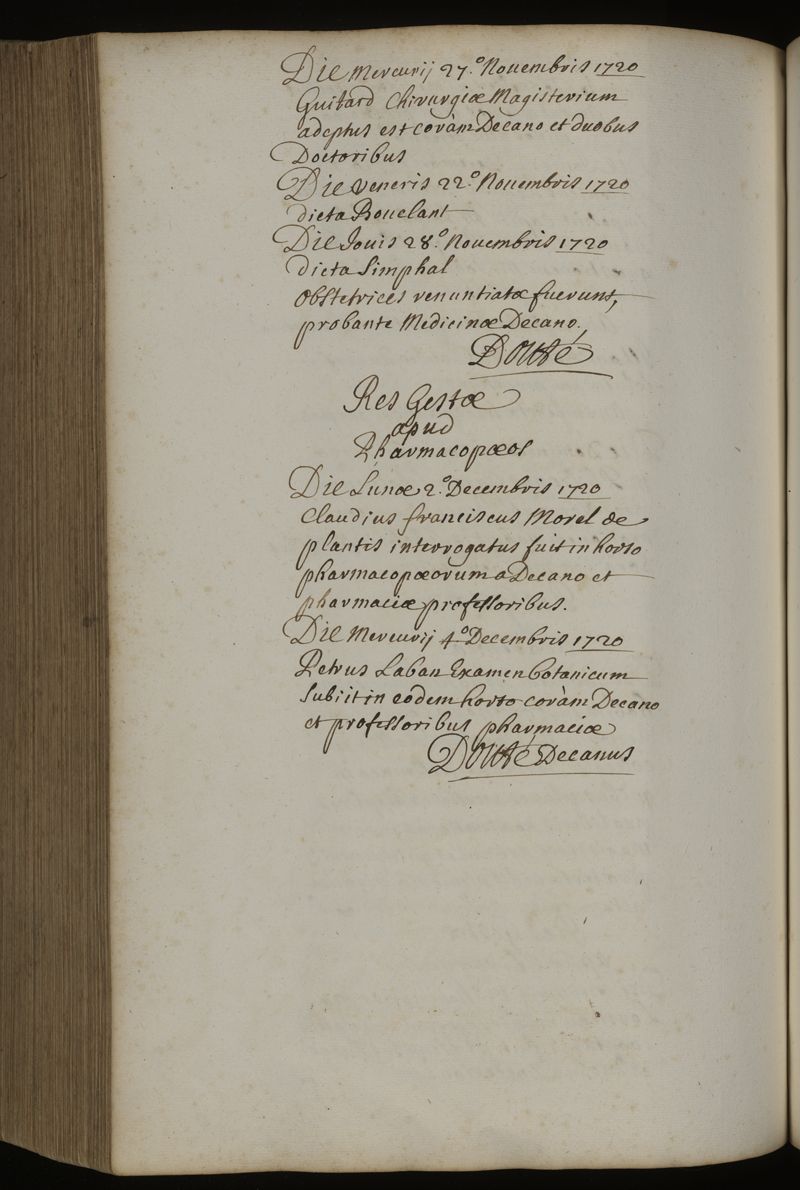 Die Mercurij 27.° Nouembris 1720
Guitard Chirurgiæ Magisterium
adeptus est coràm Decano et duobus
Doctoribus
Die Veneris 22.° Nouembris 1720
dicta Bouclant
Die Jouis 28.° Nouembris 1720
dicta Simphal
Obstetrices renuntiatæ fuerunt,
probante Medicinæ Decano.
Douté
Res Gestæ
apud
Pharmacopæos
Die Lunæ 2.° Decembris 1720
Claudius franciscus Morel de
plantis interrogatus fuit in horto
pharmacopæorum a Decano et
pharmaciæ professoribus.
Die Mercurij 4.° Decembris 1720
Petrus Laban Examen botanicum
Subiit in eodem horto coràm Decano
et professoribus pharmaciæ
Douté Decanus